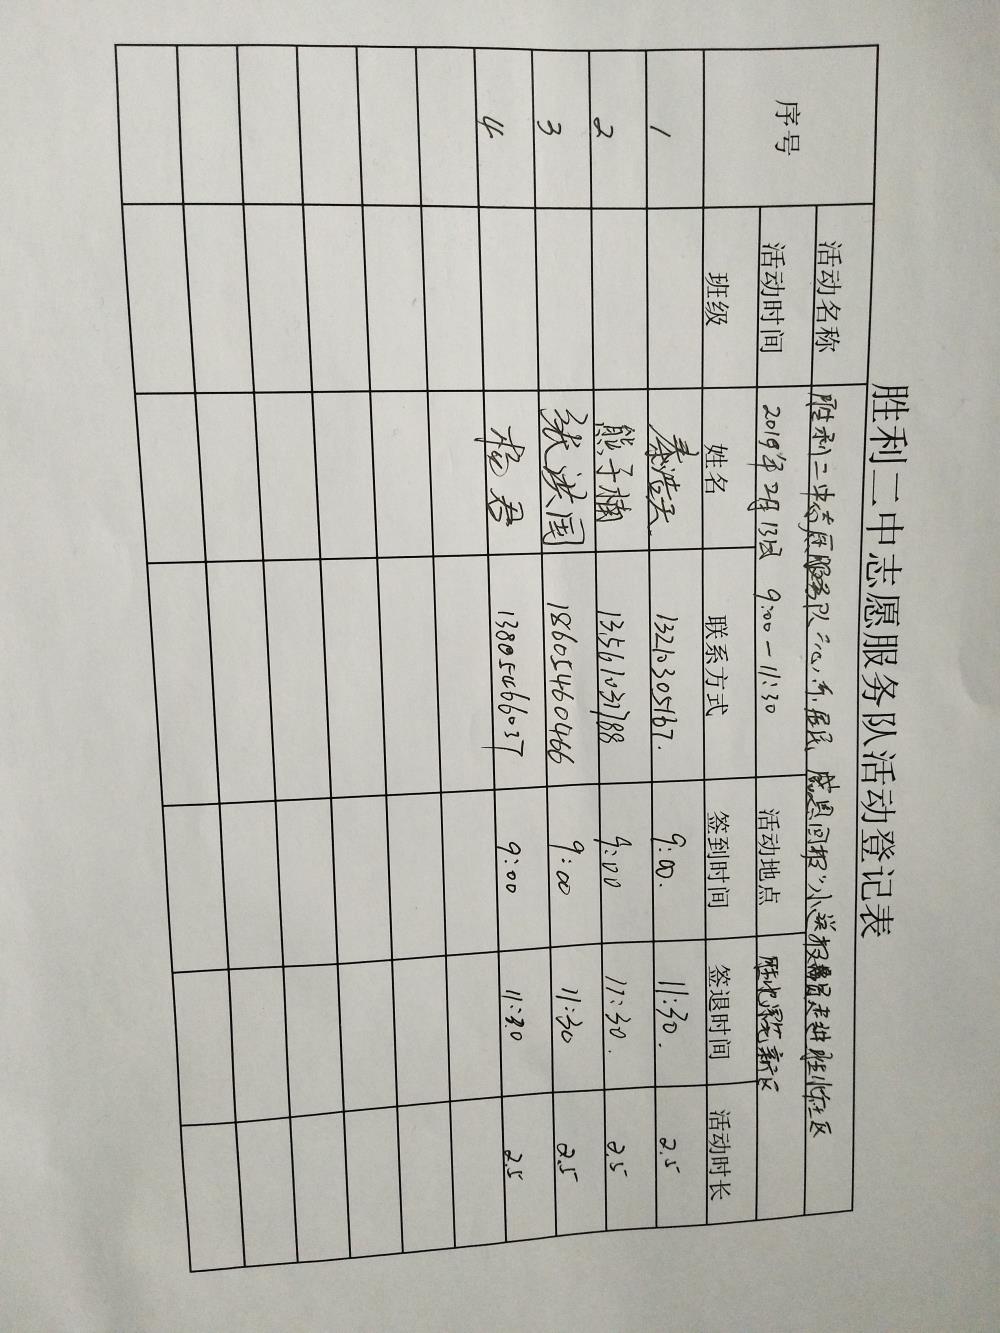 胜利二中志愿服务队活动登记表
序号 活动名称 胜利二中志愿服务队“心系居民,感恩回报”小送报员走进胜北社区
活动时间 2019年2月13日 9:00-11:30 活动地点 胜北 新区
班级 姓名 联系方式 签到时间 签退时间 活动时长
1 秦浩天 13210305167. 9:00. 11:30. 2.5
2 熊子楠 13561031788 9:00 11:30. 2.5
3 张洪国 18605460466 9:00 11:30 2.5
4 君 13805466037 9:00 11:30 2.5